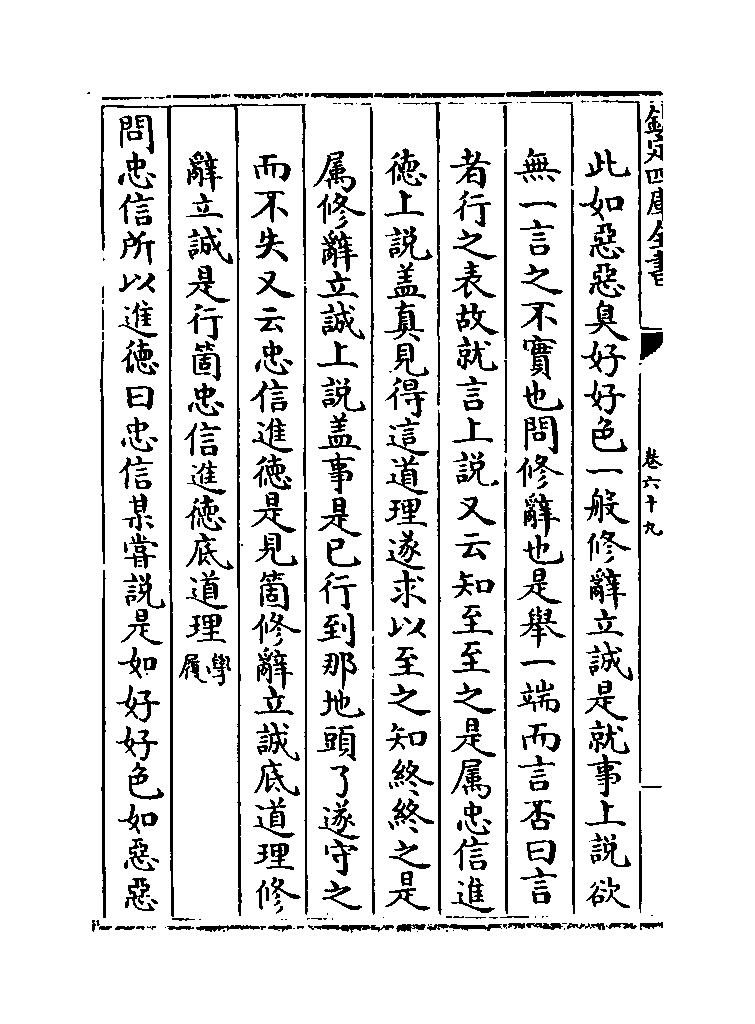 欽定四庫全書
卷六十九
此如惡惡臭好好色一般修辭立誠是就事上說欲
無一言之不實也問修辭也是舉一端而言否曰言
者行之表故就言上說又云知至至之是属忠信進
徳上說盖真見得這道理遂求以至之知終終之是
属修辭立誠上說盖事是已行到那地頭了遂守之
而不失又云忠信進徳是見箇修辭立誠底道理修
辭立誠是行箇忠信進徳底道理學履
問忠信所以進徳曰忠信某嘗說是如好好色如惡惡